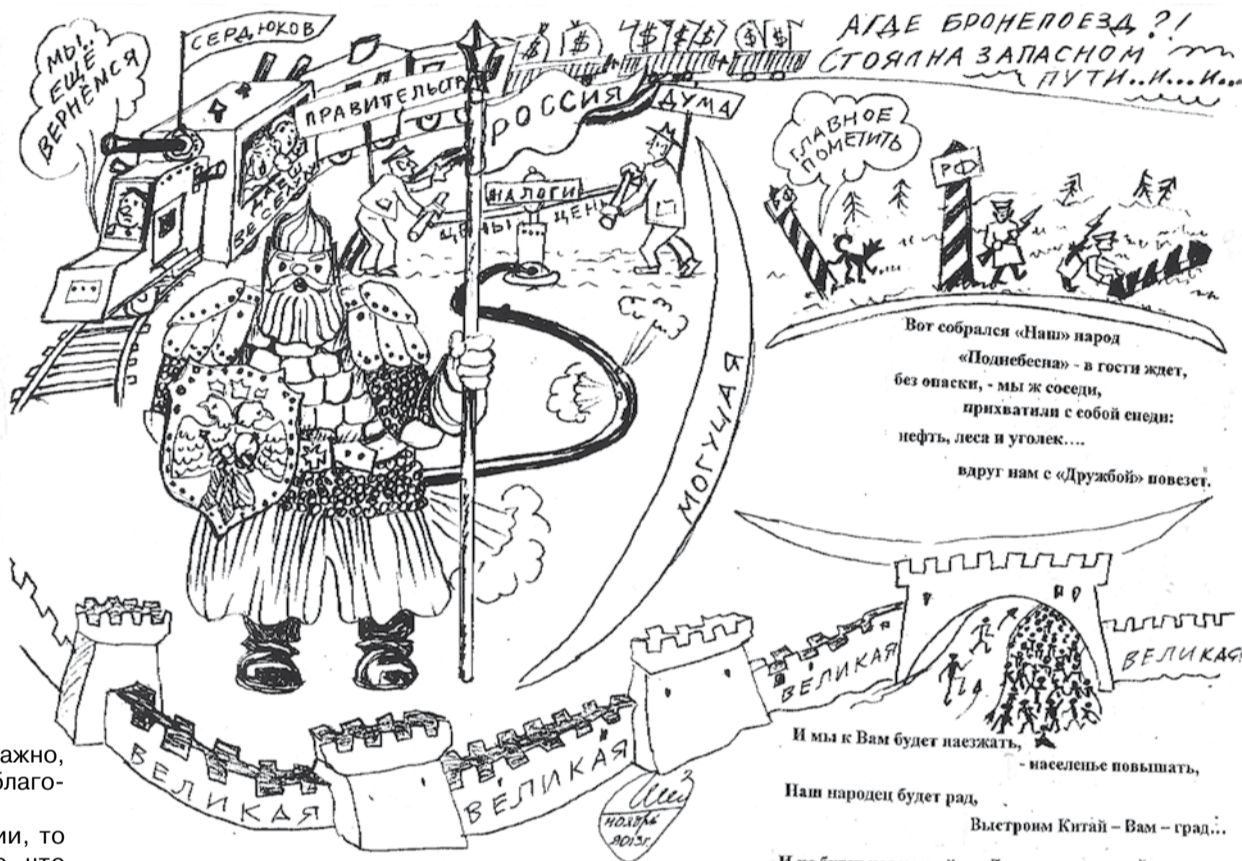 МЫ..
ЕЩЁ
ВЕРНЁМСЯ
СЕРДЮКОВ
ПРАВИТЕЛЬСТВ
$ $ $ $ $ $ $
РОССИЯ
ДУМА
АГДЕ БРОНЕПОЕЗД?!
СТОЯЛ НА ЗАПАСНОМ
ПУТИ..И...И...
ГЛАВНОЕ
ПОМЕТИТЬ
РФ
НАЛОГИ
ЦЕНЫ ЦЕНЫ
МОГУЧАЯ
Вот собрался «Наш» народ
«Поднебесна» - в гости ждет,
без опаски, - мы ж соседи,
прихватили с собой снеди:
нефть, леса и уголек….
вдруг нам с «Дружбой» повезет.
ВЕЛИКАЯ
ВЕЛИКАЯ
ВЕЛИКАЯ
ВЕЛИКАЯ
И мы к Вам будет наезжать,
- населенье повышать,
Наш народец будет рад,
Выстроим Китай – Вам – град...
НОЯБРЬ
2013г.
ажно,
благо-
ии, то